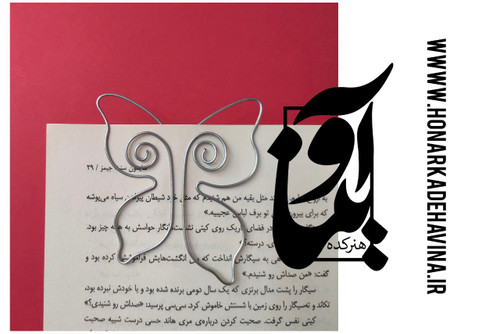 WWWW.HONARKADEHAVINA.IR
آوینا
هنرکده
جیمز / ۲۹
مثل بقیه من هم شنیدم که مثل خود شیطان سیاه می‌پوشه
که برای بیرون تو برف لباس عجیبیه.»
در فضای تاریک روی کیتی نشست، انگار حواسش به همه چیز بود.
درسته؟
به سیگارش انداخت که انگشت‌هایش کرده بود و
گفت: «من صداش رو شنیدم.»
سیگار را پشت مدال برنزی که یک سال دومی برنده شده بود و با خودش نبرده بود
تکاند و ته‌سیگار را روی زمین با شستش خاموش کرد. سی‌سی پرسید: «صداش رو شنیدی؟»
کیتی نفس گرفت. صحبت کردن درباره‌ی مری هاند حسی درست شبیه صحبت